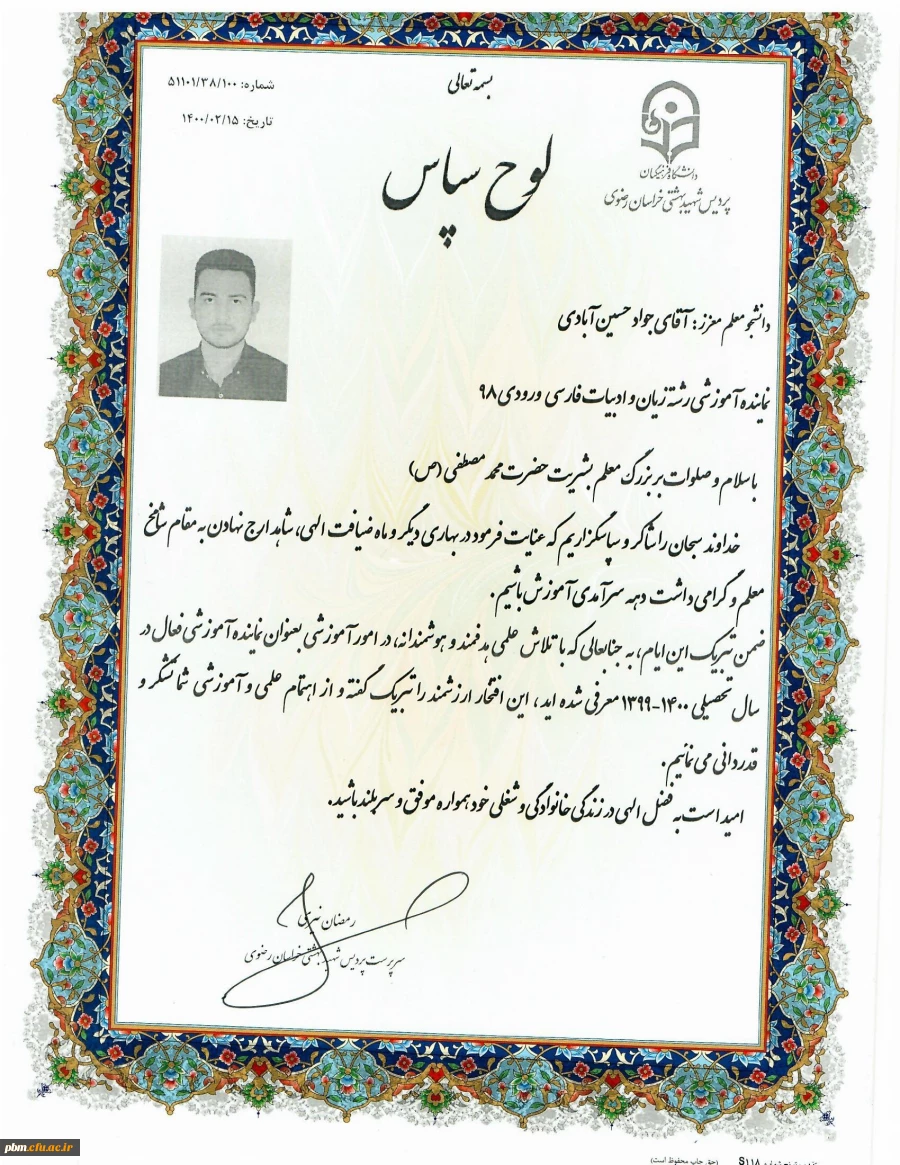 بسمه تعالی
شماره: ۵۱۱۰۱/۳۸/۱۰۰
تاریخ: ۱۴۰۰/۰۲/۱۵
دانشگاه فرهنگیان
پردیس شهید بهشتی خراسان رضوی
لوح سپاس
دانشجو معلم معزز: آقای جواد حسین آبادی
نماینده آموزشی رشته زبان و ادبیات فارسی ورودی ۹۸
با سلام و صلوات بر بزرگ معلم بشریت حضرت محمد مصطفی (ص)
خداوند سبحان را شاکر و سپاسگزاریم که عنایت فرمود در بهاری دیگر و ماه ضیافت الهی، شاهد ارج نهادن به مقام شامخ
معلم و گرامی داشت دهه سرآمدی آموزش باشیم.
ضمن تبریک این ایام، به جنابعالی که با تلاش علمی هدفمند و هوشمندانه، در امور آموزشی بعنوان نماینده آموزشی فعال در
سال تحصیلی ۱۴۰۰-۱۳۹۹ معرفی شده اید، این افتخار ارزشمند را تبریک گفته و از اهتمام علمی و آموزشی شما تشکر و
قدردانی می نمائیم.
امید است به فضل الهی در زندگی خانوادگی و شغلی خود همواره موفق و سربلند باشید.
رمضان
سرپرست پردیس شهید بهشتی خراسان رضوی
pbm.cfu.ac.ir
(حق چاپ محفوظ است)
S۱۱۸